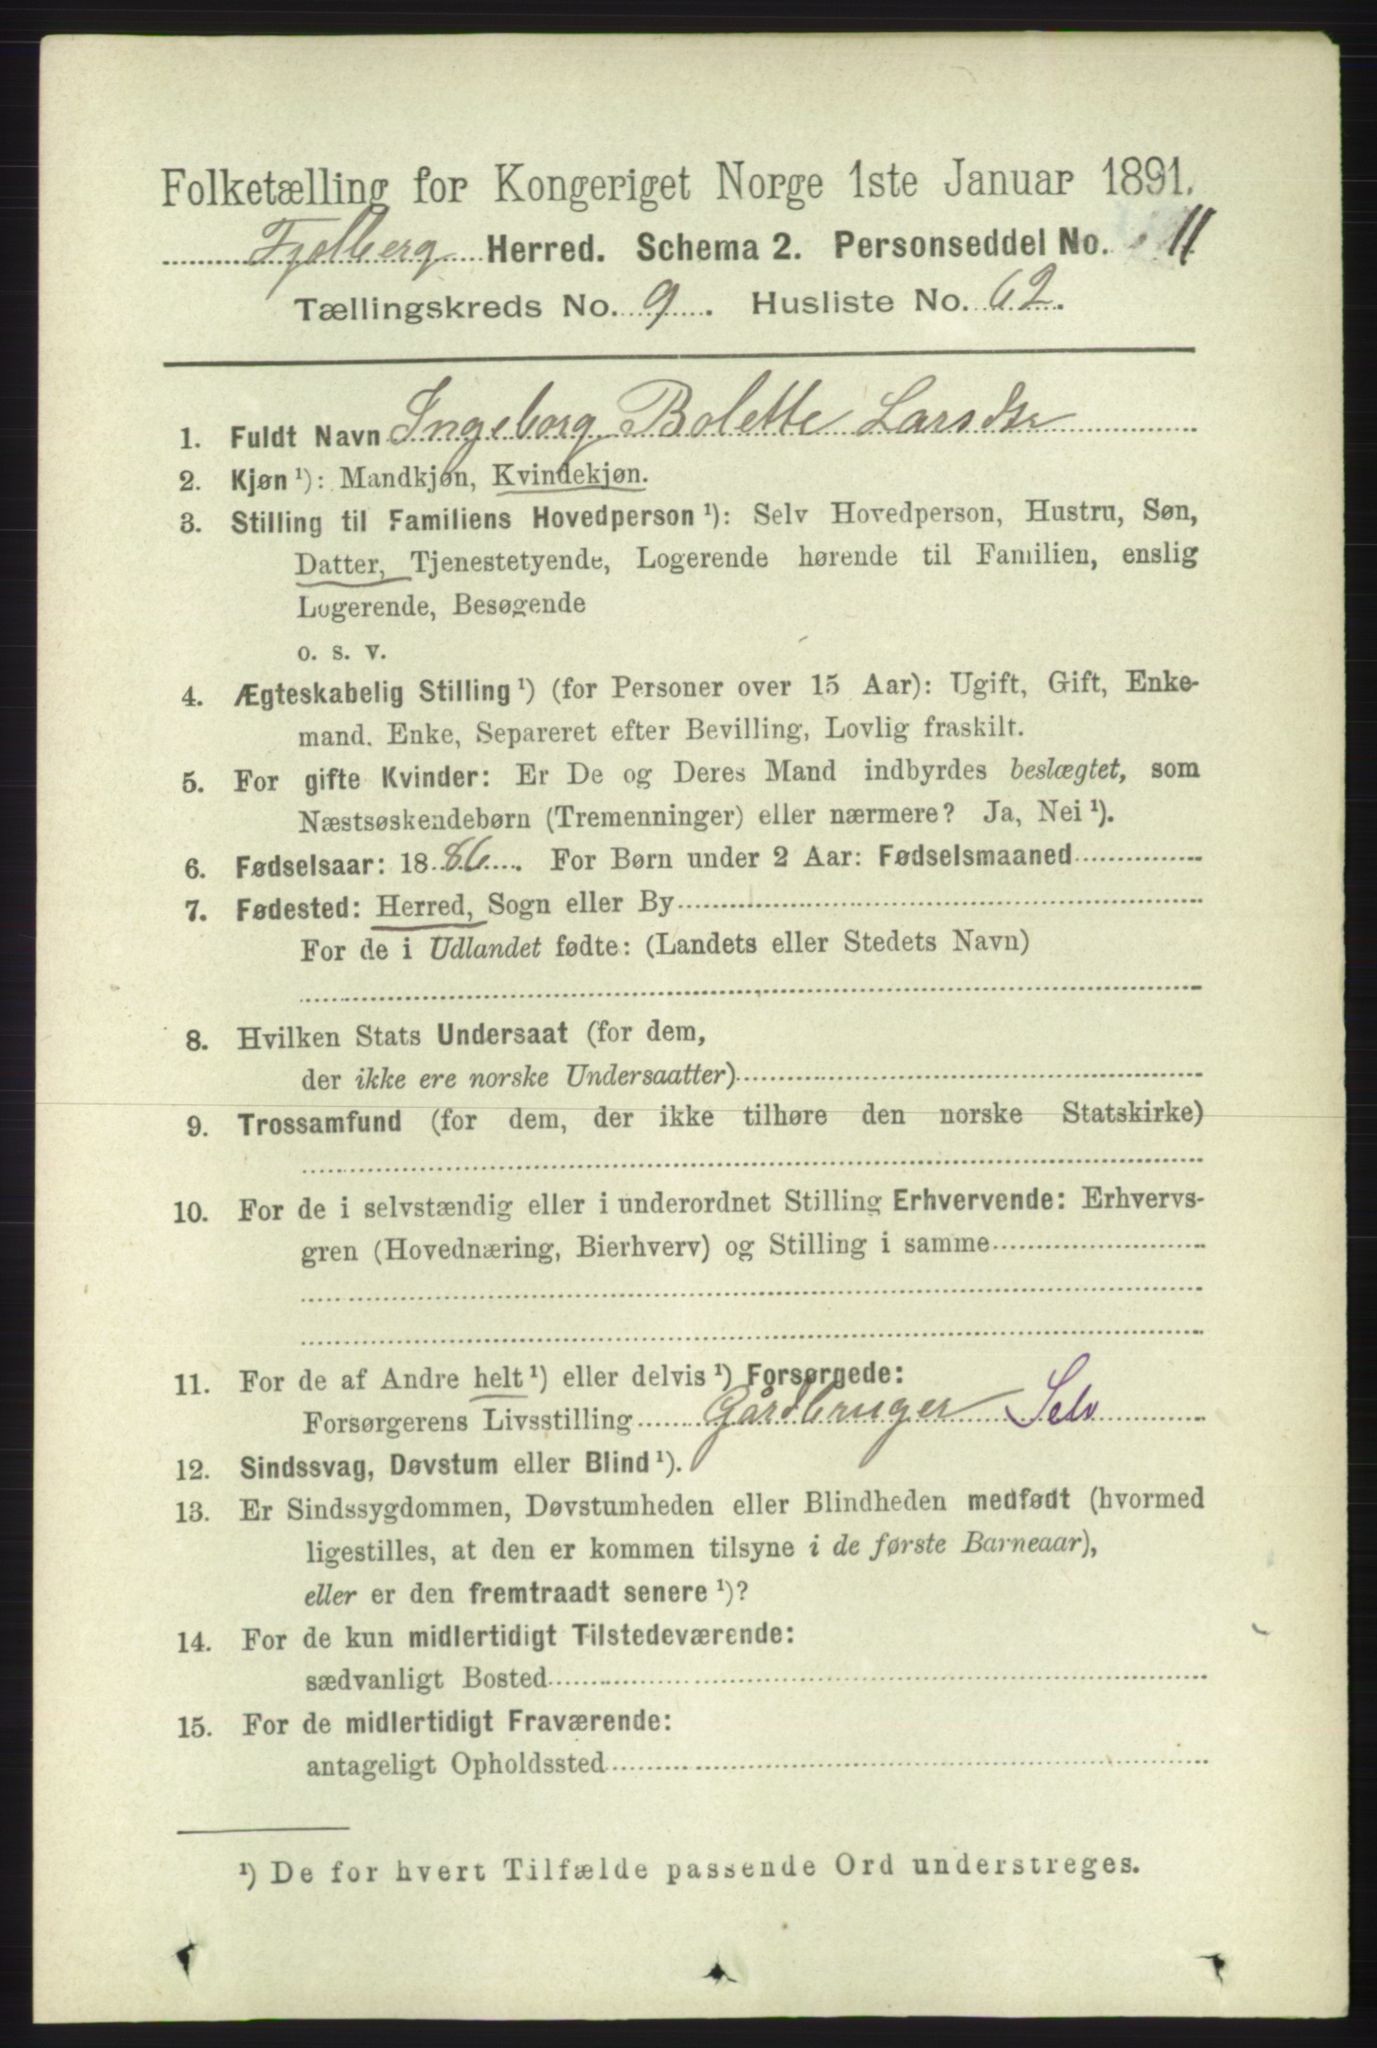 Folketælling for Kongeriget Norge 1ste Januar 1891.
Fjelberg Herred. Schema 2. Personseddel No. 11
Tællingskreds No. 9. Husliste No. 62.
1. Fuldt Navn Ingeborg Bolette Larsdtr
2. Kjøn ¹): Mandkjøn, Kvindekjøn.
3. Stilling til Familiens Hovedperson ¹): Selv Hovedperson, Hustru, Søn,
Datter, Tjenestetyende, Logerende hørende til Familien, enslig
Logerende, Besøgende
o. s. v.
4. Ægteskabelig Stilling ¹) (for Personer over 15 Aar): Ugift, Gift, Enke-
mand. Enke, Separeret efter Bevilling, Lovlig fraskilt.
5. For gifte Kvinder: Er De og Deres Mand indbyrdes beslægtet, som
Næstsøskendebørn (Tremenninger) eller nærmere? Ja, Nei ¹).
6. Fødselsaar: 1886. For Børn under 2 Aar: Fødselsmaaned
7. Fødested: Herred, Sogn eller By
For de i Udlandet fødte: (Landets eller Stedets Navn)
8. Hvilken Stats Undersaat (for dem,
der ikke ere norske Undersaatter)
9. Trossamfund (for dem, der ikke tilhøre den norske Statskirke)
10. For de i selvstændig eller i underordnet Stilling Erhvervende: Erhvervs-
gren (Hovednæring, Bierhverv) og Stilling i samme
11. For de af Andre helt ¹) eller delvis ¹) Forsørgede:
Forsørgerens Livsstilling Gårdbruger Selv
12. Sindssvag, Døvstum eller Blind ¹).
13. Er Sindssygdommen, Døvstumheden eller Blindheden medfødt (hvormed
ligestilles, at den er kommen tilsyne i de første Barneaar),
eller er den fremtraadt senere ¹)?
14. For de kun midlertidigt Tilstedeværende:
sædvanligt Bosted
15. For de midlertidigt Fraværende:
antageligt Opholdssted
¹) De for hvert Tilfælde passende Ord understreges.